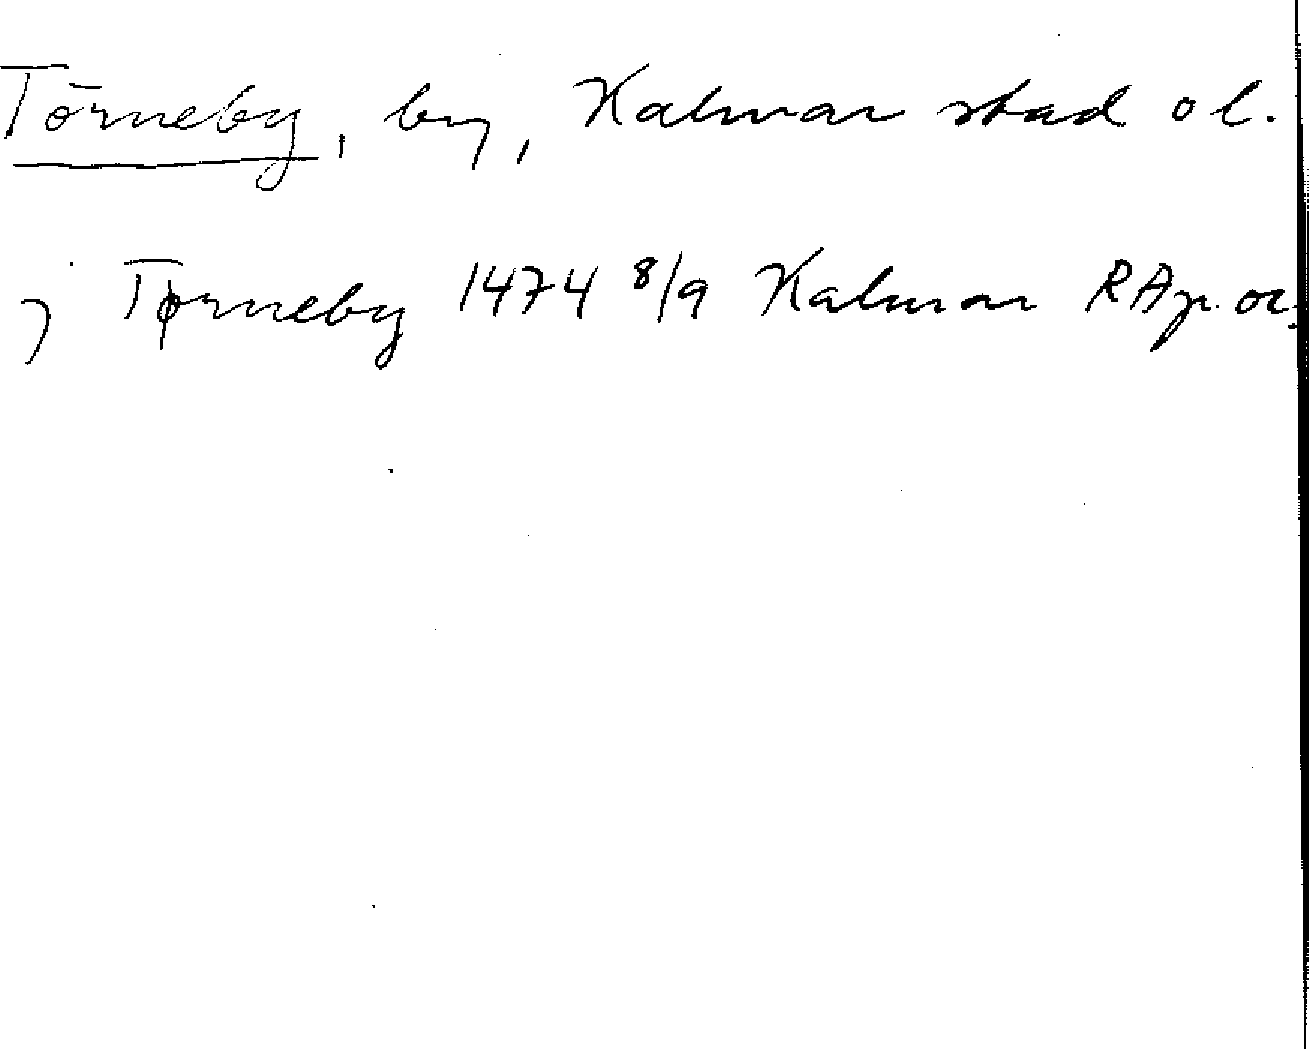 Törneby, by, Kalmar stad o l.
j Tørneby 1474 8/9 Kalmar RAp. or.